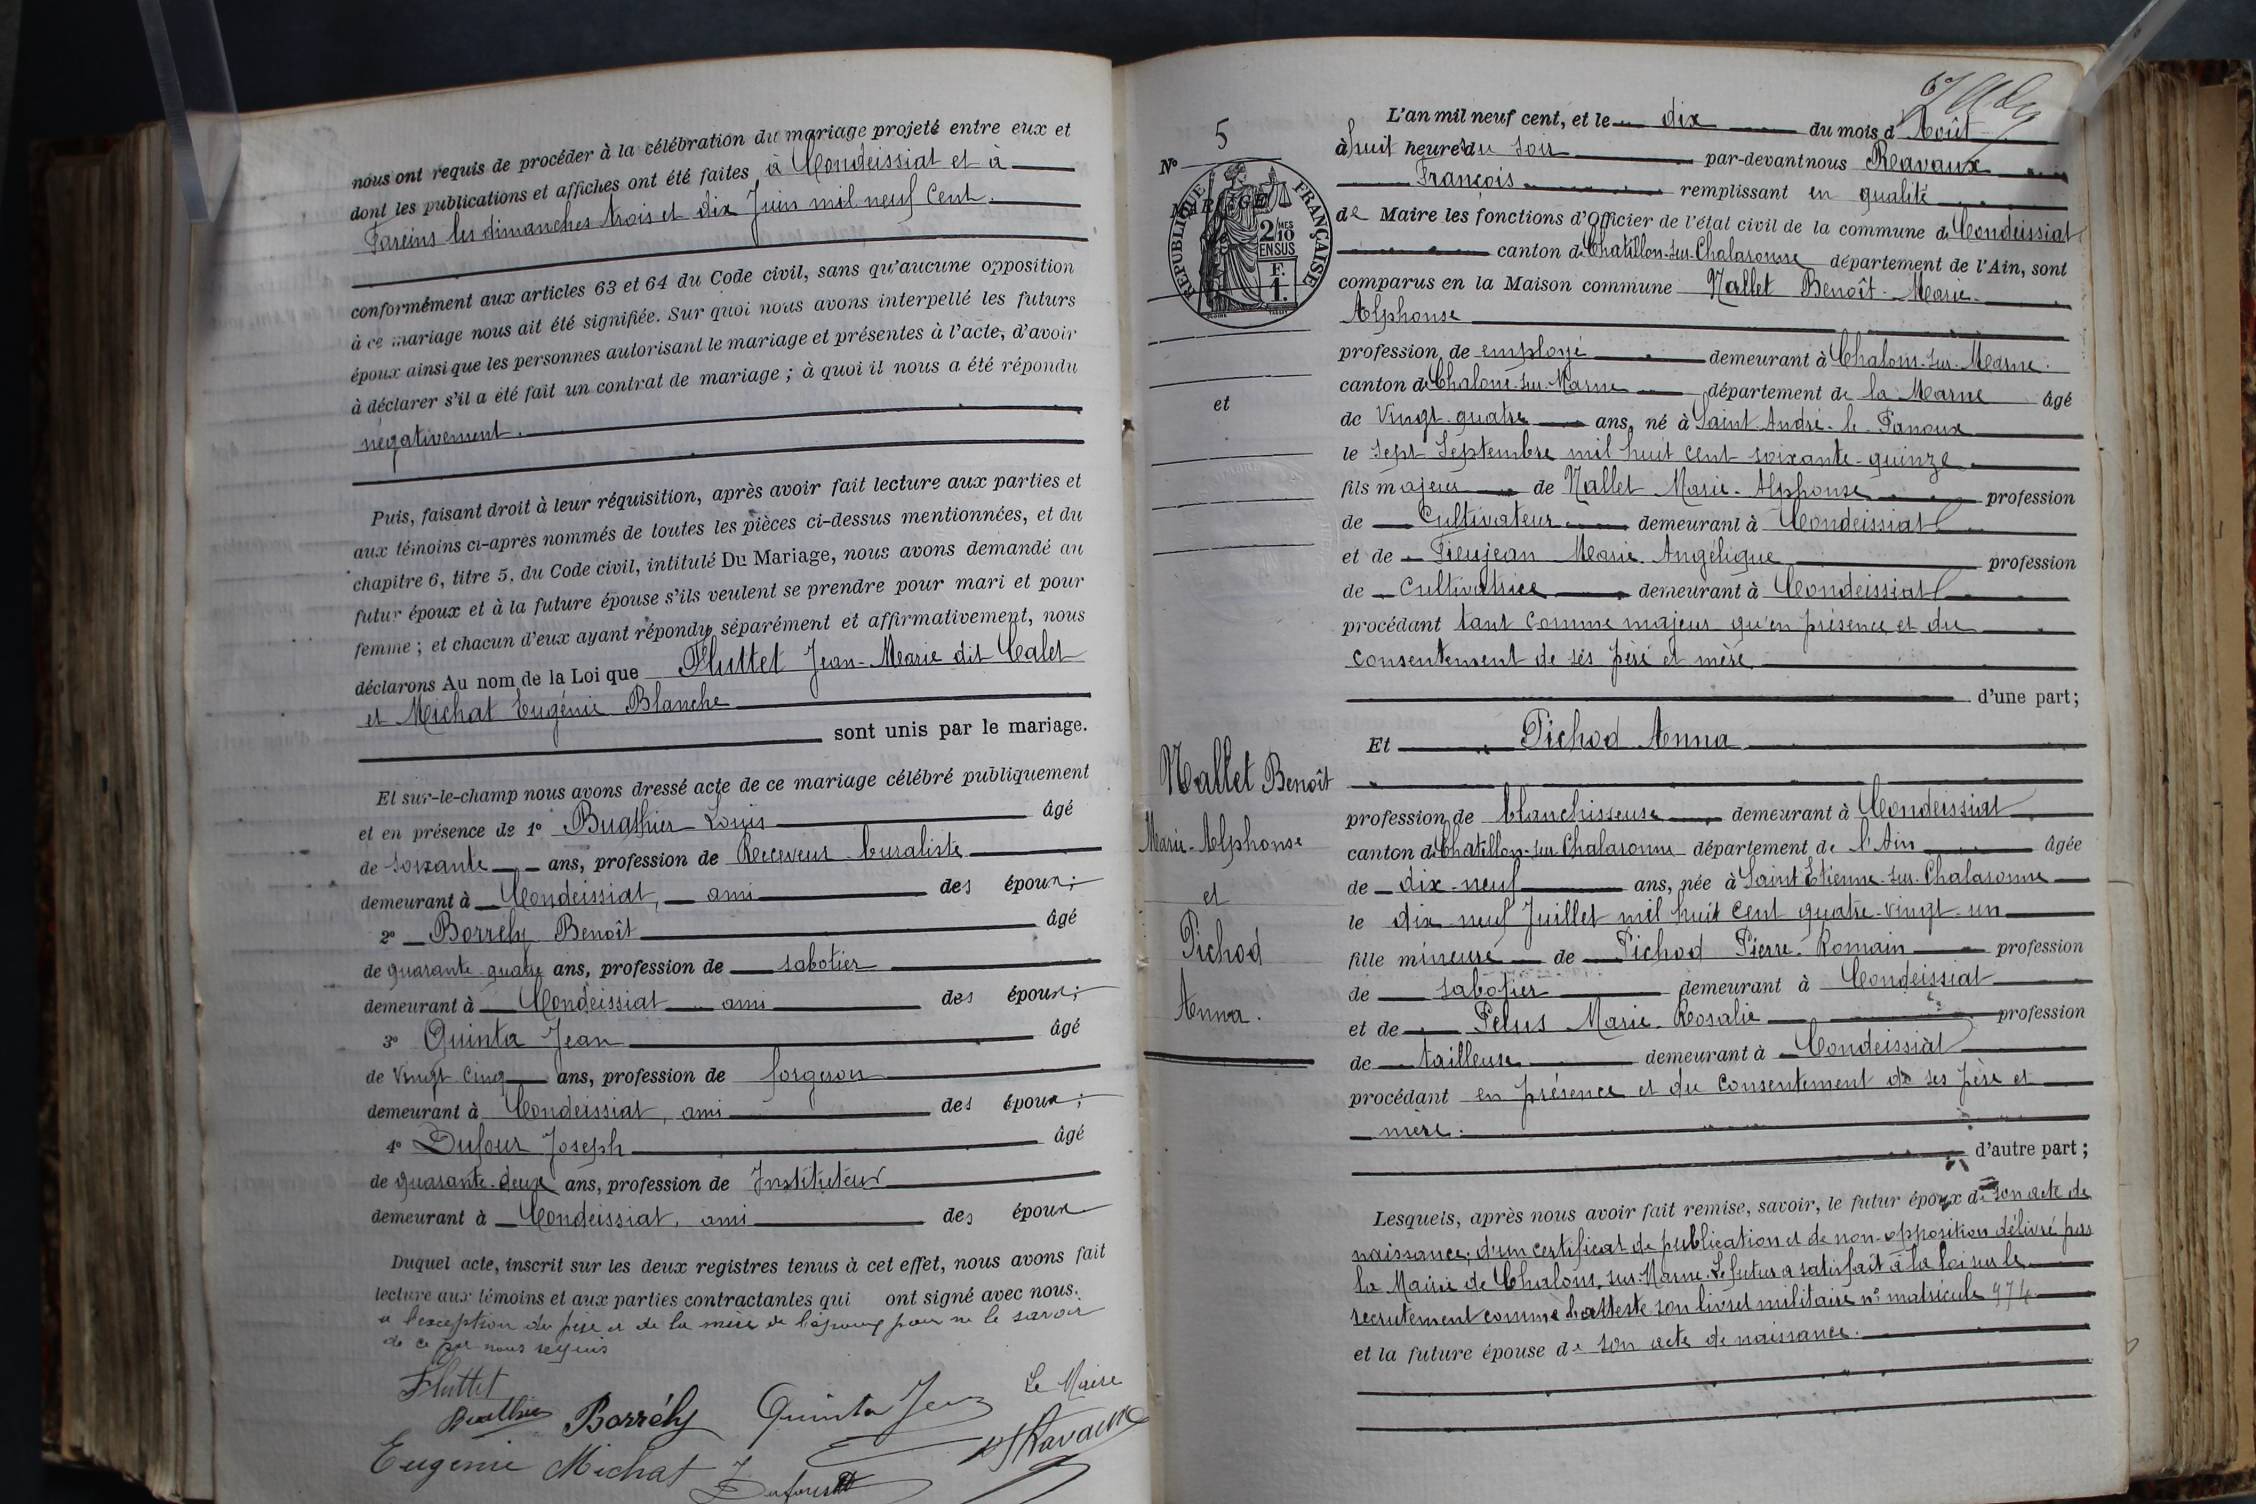 nous ont requis de procéder à la célébration du mariage projeté entre eux et
dont les publications et affiches ont été faites à Condeissiat et à
Fareins les dimanches trois et dix Juin mil neuf Cent.
conformément aux articles 63 et 64 du Code civil, sans qu'aucune opposition
à ce mariage nous ait été signifiée. Sur quoi nous avons interpellé les futurs
époux ainsi que les personnes autorisant le mariage et présentes à l'acte, d'avoir
à déclarer s'il a été fait un contrat de mariage ; à quoi il nous a été répondu
négativement.
Puis, faisant droit à leur réquisition, après avoir fait lecture aux parties et
aux témoins ci-après nommés de toutes les pièces ci-dessus mentionnées, et du
chapitre 6, titre 5, du Code civil, intitulé Du Mariage, nous avons demandé au
futur époux et à la future épouse s'ils veulent se prendre pour mari et pour
femme ; et chacun d'eux ayant répondu séparément et affirmativement, nous
déclarons Au nom de la Loi que Fluttet Jean-Marie dit Calet
et Michat Eugénie Blanche
sont unis par le mariage.
Et sur-le-champ nous avons dressé acte de ce mariage célébré publiquement
et en présence de 1º Buathier Louis âgé
de soixante ans, profession de Receveur buraliste
demeurant à Condeissiat, ami des époux ;
2º Borrély Benoît âgé
de quarante quatre ans, profession de sabotier
demeurant à Condeissiat ami des époux ;
3º Quinta Jean âgé
de Vingt cinq ans, profession de forgeron
demeurant à Condeissiat, ami des époux ;
4º Dufour Joseph âgé
de quarante-deux ans, profession de Instituteur
demeurant à Condeissiat, ami des époux
Duquel acte, inscrit sur les deux registres tenus à cet effet, nous avons fait
lecture aux témoins et aux parties contractantes qui ont signé avec nous.
à l'exception du père et de la mère de l'époux pour ne le savoir
de ce par nous requis
Fluttet
Le Maire
Buathier Borrély Quinta Jean
Ravaux
Eugénie Michat
J Dufour
Nº 5
MARIAGE
RÉPUBLIQUE FRANÇAISE
2/10 MES
EN SUS
F.
1.
et
Mallet Benoît
Marie-Alphonse
et
Pichod
Anna.
L'an mil neuf cent, et le dix du mois d'Août
à huit heures du soir par-devant nous Ravaux
François remplissant en qualité
de Maire les fonctions d'Officier de l'état civil de la commune de Condeissiat
canton de Chatillon-sur-Chalaronne département de l'Ain, sont
comparus en la Maison commune Mallet Benoît-Marie-
Alphonse
profession de employé demeurant à Chalons-sur-Marne
canton de Chalons-sur-Marne département de la Marne âgé
de Vingt-quatre ans, né à Saint-André-le-Panoux
le sept Septembre mil huit cent soixante-quinze
fils majeur de Mallet Marie-Alphonse profession
de Cultivateur demeurant à Condeissiat
et de Fieujean Marie Angélique profession
de Cultivatrice demeurant à Condeissiat
procédant tant comme majeur qu'en présence et du
consentement de ses père et mère
d'une part;
Et Pichod Anna
profession de blanchisseuse demeurant à Condeissiat
canton de Chatillon-sur-Chalaronne département de l'Ain âgée
de dix-neuf ans, née à Saint Etienne-sur-Chalaronne
le dix neuf Juillet mil huit cent quatre-vingt-un
fille mineure de Pichod Pierre-Romain profession
de sabotier demeurant à Condeissiat
et de Pelus Marie-Rosalie profession
de tailleuse demeurant à Condeissiat
procédant en présence et du consentement de ses père et
mère.
d'autre part ;
Lesquels, après nous avoir fait remise, savoir, le futur époux de son acte de
naissance; d'un certificat de publication et de non-opposition délivré par
la Mairie de Chalons-sur-Marne. Le futur a satisfait à la loi sur le
recrutement comme l'atteste son livret militaire nº matricule 974
et la future épouse de son acte de naissance.